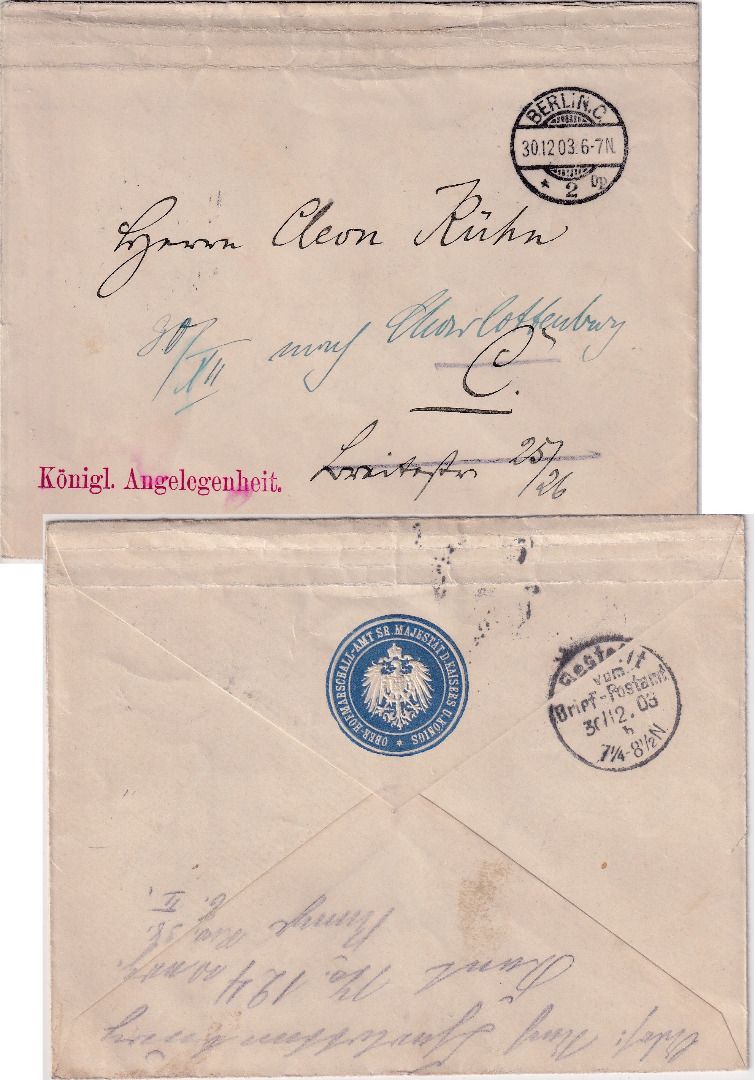 BERLIN.C.
30.12.03.6-7N.
* 2 Op
Herrn Cleon Kühn
30/XII nach Charlottenburg.
C.
Breitestr. 25/26
Königl. Angelegenheit.
OBER-HOFMARSCHALL-AMT SR. MAJESTÄT D. KAISERS U. KÖNIGS *
Bestellt
vom
Brief-Postamt
30/12. 03
7¼-8½N
Kant No. 124